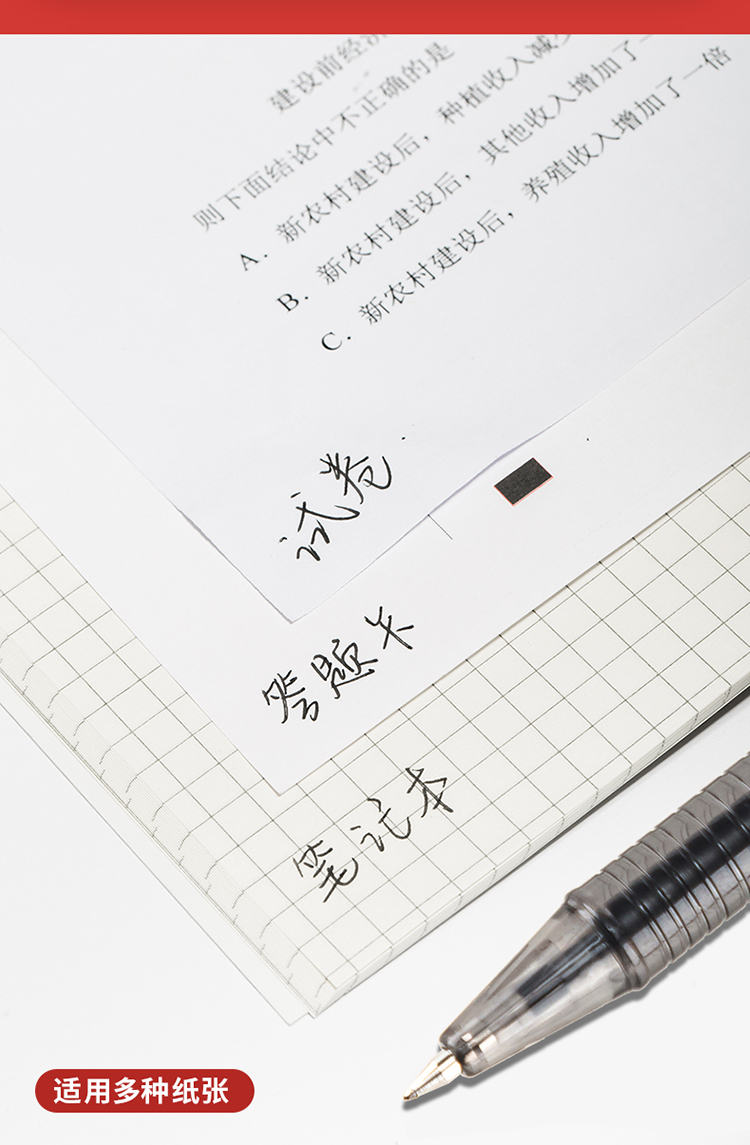 建设前经济
则下面结论中不正确的是
A. 新农村建设后，种植收入减少
B. 新农村建设后，其他收入增加了一
C. 新农村建设后，养殖收入增加了一倍
试卷
答题卡
笔记本
适用多种纸张